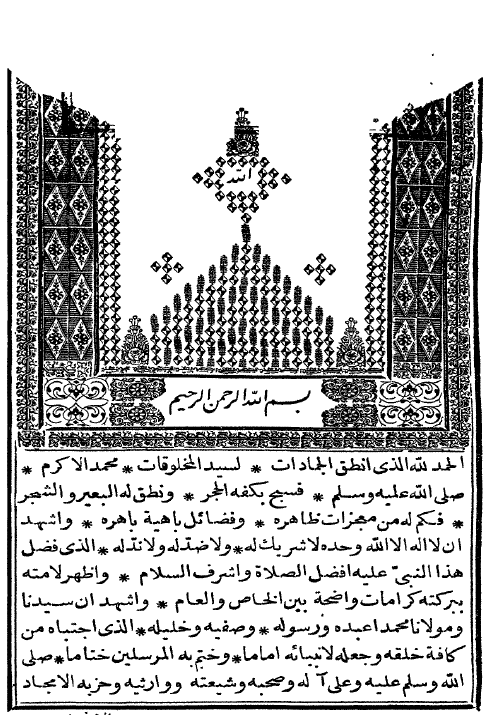 الله
بسم الله الرحمن الرحيم
الحمد لله الذى انطق الجمادات * لسيد المخلوقات * محمد الاكرم *
صلى الله عليه وسلم * فسبح بكفه الحجر * ونطق له البعير والشجر
* فكم له من معجزات ظاهره * وفضائل باهية باهره * واشهد
ان لا اله الا الله وحده لا شريك له * ولا ضد له ولا ند له * الذى فضل
هذا النبى عليه افضل الصلاة واشرف السلام * واظهر لامته
ببركته كرامات واضحة بين الخاص والعام * واشهد ان سيدنا
ومولانا محمدا عبده ورسوله * وصفيه وخليله * الذى اجتباه من
كافة خلقه وجعله لانبيائه اماما * وختم به المرسلين ختاما * صلى
الله وسلم عليه وعلى آله وصحبه وشيعته ووارثيه وحزبه الامجاد